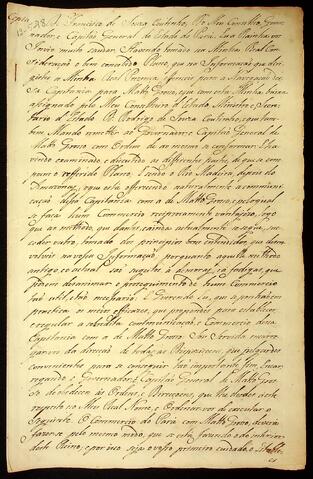 D. Francisco de Souza Coutinho, Do Meu Conselho, Gover-
nador, e Capitão General do Estado do Pará. Eu a Rainha vos
envio muito saudar. Havendo tomado na Minha Real Con-
sideração o bem concebido Plano, que na Informação que di-
rigistes a Minha Real Presença
essa Capitania para Matto Grosso, e que com esta Minha baixa
assignado pelo Meu Conselheiro d'Estado, Ministro e Secre-
tario de Estado D. Rodrigo de Souza Coutinho, e que tam-
bem Mando remetter ao Governador, e Capitão General de
Matto Grosso com Ordem de ao mesmo se conformar. Eha-
vendo examinado, e discutido as differentes partes, de que se com-
poem o referido Plano; Sendo o Rio Madeira, depois do
Amazonas, o que está offerecendo naturalmente a communi-
cação dessa Capitania com a de Matto Grosso, e pelo qual
se faça hum Commercio reciprocamente vantajoso, logo
que ao methodo, que dantes, e ainda actualmente se segue, suc-
ceder outro, tomado dos principios bem entendidos, que dezen-
volveis na vossa Informação, porquanto aquelle methodo
antigo, e o actual são sugeitos a demoras, e a fadigas, que
podem desanimar o proseguimento de hum Commercio
tão util, e tão necessario: E Querendo Eu, que se ponhão em
practica os meios efficazes, que propondes para estabelecer,
e regular a sobredita communicação, e Commercio dessa
Capitania com a de Matto Grosso. Sou Servida encarre-
garvos da direcção de todas as Disposiçoens, que julgardes
convenientes para se conseguir tão importante fim, Encar-
regando ao Governador, e Capitão General de Matto Gros-
so de obedecer às Ordens, e Direcçoens, que lhe derdes a este
respeito no Meu Real Nome, e Ordenarvos de executar o
seguinte. O Commercio do Pará com Matto Grosso, deverá
fazerse pelo mesmo modo, que se está fazendo o do interior
deste Reino, e por isso será o vosso primeiro cuidado, o Estabele-